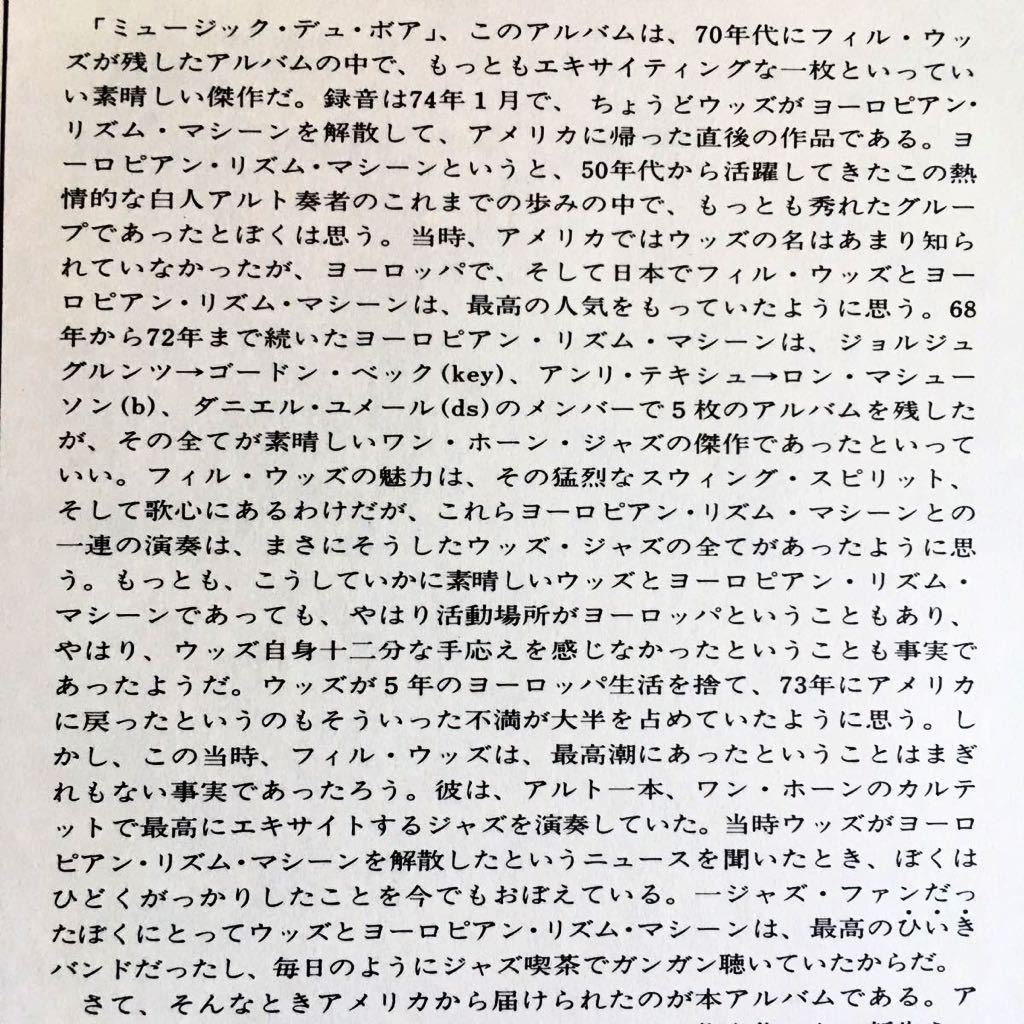 「ミュージック・デュ・ボア」、このアルバムは、70年代にフィル・ウッ
ズが残したアルバムの中で、もっともエキサイティングな一枚といってい
い素晴しい傑作だ。録音は74年1月で、ちょうどウッズがヨーロピアン・
リズム・マシーンを解散して、アメリカに帰った直後の作品である。ヨ
ーロピアン・リズム・マシーンというと、50年代から活躍してきたこの熱
情的な白人アルト奏者のこれまでの歩みの中で、もっとも秀れたグルー
プであったとぼくは思う。当時、アメリカではウッズの名はあまり知ら
れていなかったが、ヨーロッパで、そして日本でフィル・ウッズとヨー
ロピアン・リズム・マシーンは、最高の人気をもっていたように思う。68
年から72年まで続いたヨーロピアン・リズム・マシーンは、ジョルジュ
グルンツ→ゴードン・ベック(key)、アンリ・テキシュ→ロン・マシュー
ソン(b)、ダニエル・ユメール(ds)のメンバーで5枚のアルバムを残した
が、その全てが素晴しいワン・ホーン・ジャズの傑作であったといって
いい。フィル・ウッズの魅力は、その猛烈なスウィング・スピリット、
そして歌心にあるわけだが、これらヨーロピアン・リズム・マシーンとの
一連の演奏は、まさにそうしたウッズ・ジャズの全てがあったように思
う。もっとも、こうしていかに素晴しいウッズとヨーロピアン・リズム・
マシーンであっても、やはり活動場所がヨーロッパということもあり、
やはり、ウッズ自身十二分な手応えを感じなかったということも事実で
あったようだ。ウッズが5年のヨーロッパ生活を捨て、73年にアメリカ
に戻ったというのもそういった不満が大半を占めていたように思う。し
かし、この当時、フィル・ウッズは、最高潮にあったということはまぎ
れもない事実であったろう。彼は、アルト一本、ワン・ホーンのカルテ
ットで最高にエキサイトするジャズを演奏していた。当時ウッズがヨーロ
ピアン・リズム・マシーンを解散したというニュースを聞いたとき、ぼくは
ひどくがっかりしたことを今でもおぼえている。一ジャズ・ファンだっ
たぼくにとってウッズとヨーロピアン・リズム・マシーンは、最高のひいき
バンドだったし、毎日のようにジャズ喫茶でガンガン聴いていたからだ。
さて、そんなときアメリカから届けられたのが本アルバムである。ア